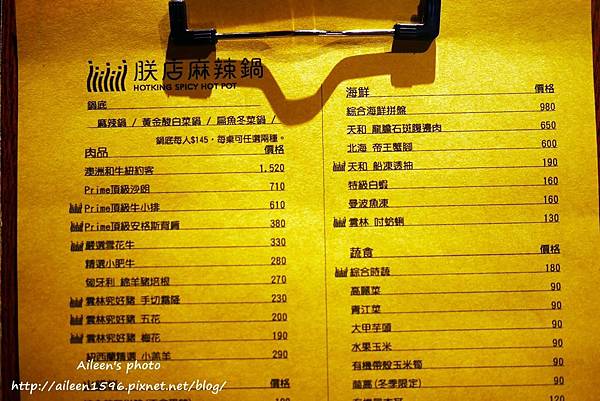 朕店麻辣鍋
HOTKING SPICY HOT POT
鍋底
麻辣鍋 / 黃金酸白菜鍋 / 扁魚冬菜鍋 /
鍋底每人$145，每桌可任選兩種。
肉品 價格
澳洲和牛紐約客 1,520
Prime頂級沙朗 710
Prime頂級牛小排 610
Prime頂級安格斯背肩 380
嚴選雪花牛 330
精選小肥牛 280
匈牙利 綿羊豬培根 270
雲林究好豬 手切霜降 230
雲林究好豬 五花 200
雲林究好豬 梅花 190
紐西蘭精選 小羔羊 290
價格
海鮮 價格
綜合海鮮拼盤 980
天和 龍膽石斑腹邊肉 650
北海 帝王蟹腳 600
天和 船凍透抽 190
特級白蝦 160
曼波魚凍 160
雲林 吋蛤蜊 130
蔬食 價格
綜合時蔬 180
高麗菜 90
青江菜 90
大甲芋頭 90
水果玉米 90
有機帶殼玉米筍 90
茼蒿(冬季限定) 90
120
Aileen's photo
http://aileen1596.pixnet.net/blog/